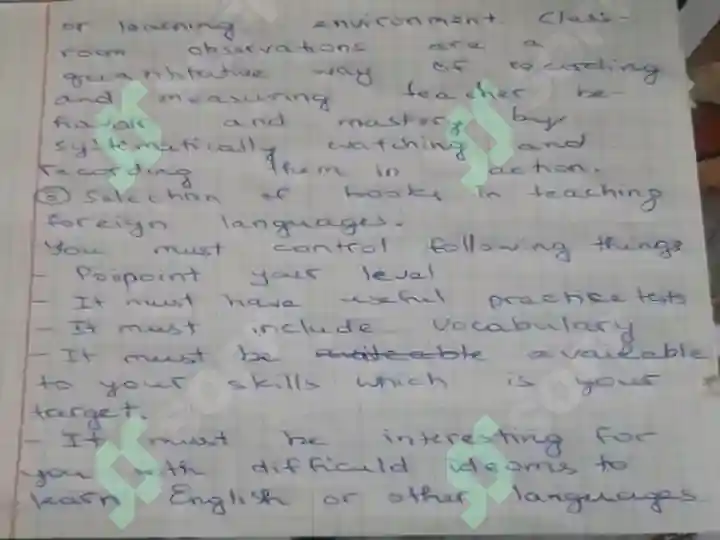 or learning environment. Class-
room observations are a
quantitative way of recording
and measuring teacher be-
havior and mastery by
systematically watching and
recording them in action.
② Selection of books in teaching
foreign languages.
You must control following things
- Poinpoint your level
- It must have useful practice tests
- It must include vocabulary
- It must be available
to your skills which is your
target.
- It must be interesting for
you with difficuld ideoms to
learn English or other languages